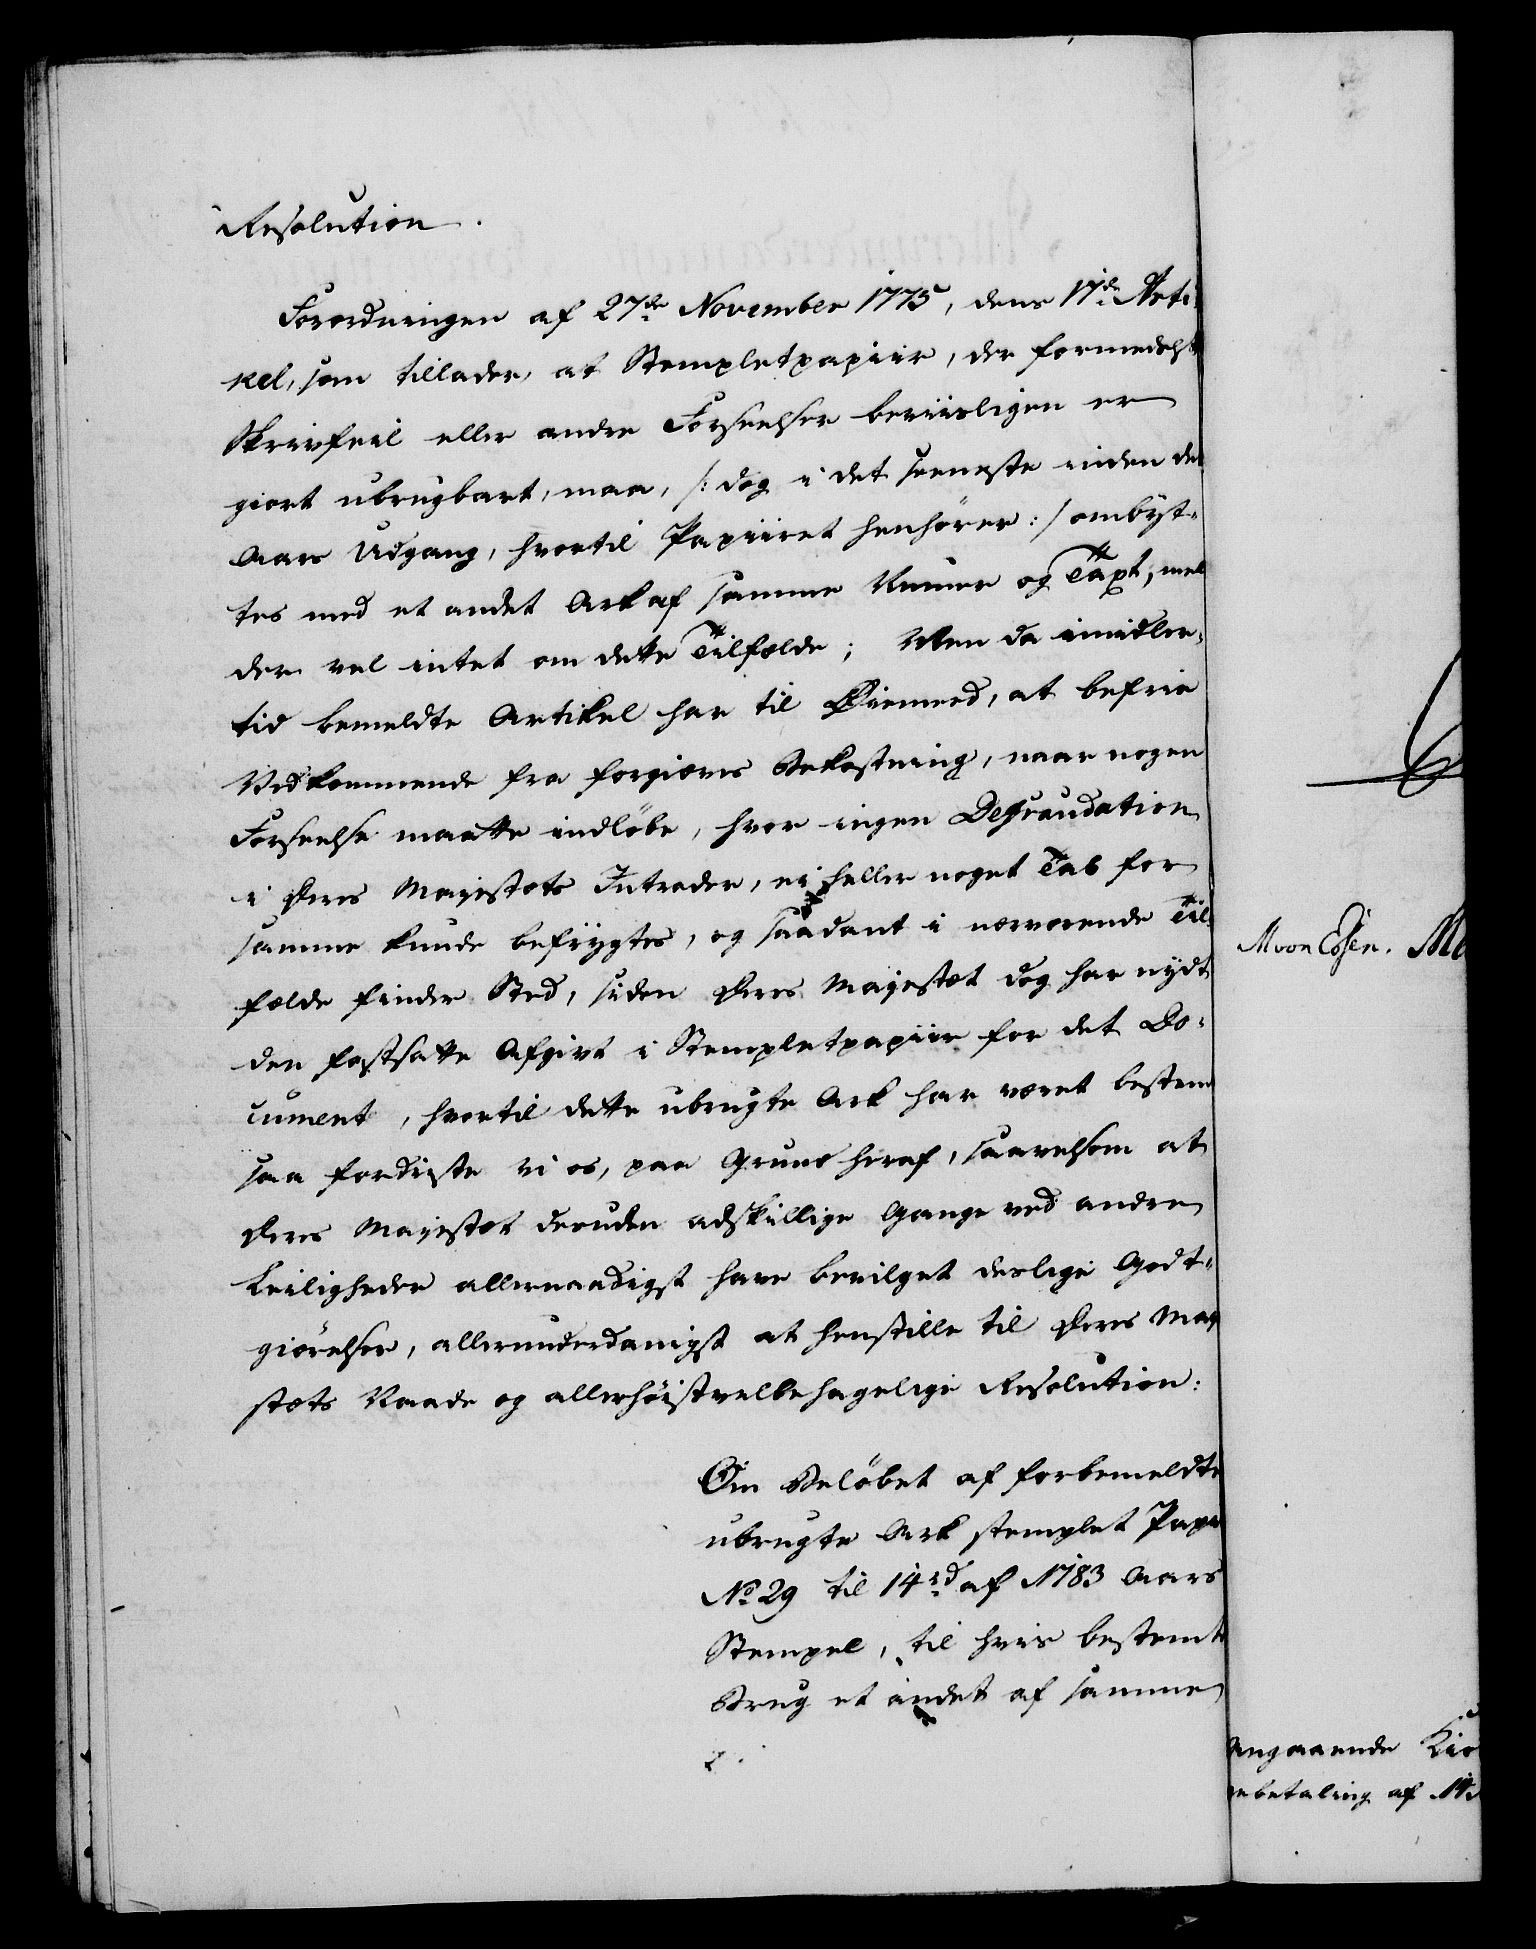 Resolution.
Forordningen af 27de November 1775, dens 17de Arti-
kel, som tillader, at Stempletpapiir, der formedelst
Skrivfeil eller andre Forseelser beviisligen er
giort ubrugbart, maa, /: dog i det seeneste inden det
Aars Udgang, hvortil Papiiret henhører :/ ombyt-
tes med et andet Ark af samme Numer og Taxt, mel
der vel intet om dette Tilfælde; Men da imidler-
tid bemeldte Artikel har til Øiemeed, at befrie
Vedkommende fra forgieves Bekostning, naar nogen
Forseelse maatte indløbe, hvor ingen Defraudation
i Deres Majestæts Intrader, ei heller noget Tab for
samme kunde befrygtes, og saadant i nærværende Til-
fælde finder Sted, siden Deres Majestæt dog har nydt
den fastsatte Afgivt i Stempletpapiir for det Do-
cument, hvortil dette ubrugte Ark har været bestemt
saa fordriste vi os, paa Grund heraf, saavelsom at
Deres Majestæt desuden adskillige Gange ved andre
Leiligheder allernaadigst have bevilget deslige Godt-
giørelser, allerunderdanigst at henstille til Deres Maj
stæts Naade og allerhøistvelbehagelige Resolution:
Om Beløbet af forbemeldte
ubrugte Ark stemplet Papi
No 29 til 14 rd af 1783 Aars
Stempel, til hvis bestemte
Brug et andet af samme
M von Essen. Mo
angaaende Kiø
ebetaling af 14